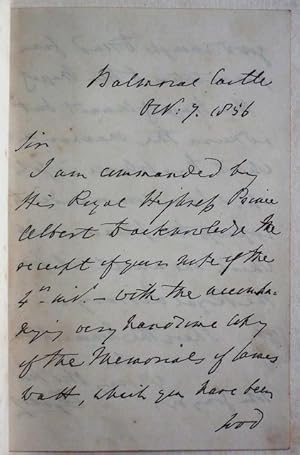 Balmoral Castle
Oct. 7. 1856
Sir
I am commanded by
His Royal Highness Prince
Albert to acknowledge the
receipt of your note of the
4th inst. – with the accompa-
nying very handsome copy
of the Memorials of James
Watt, which you have been
good